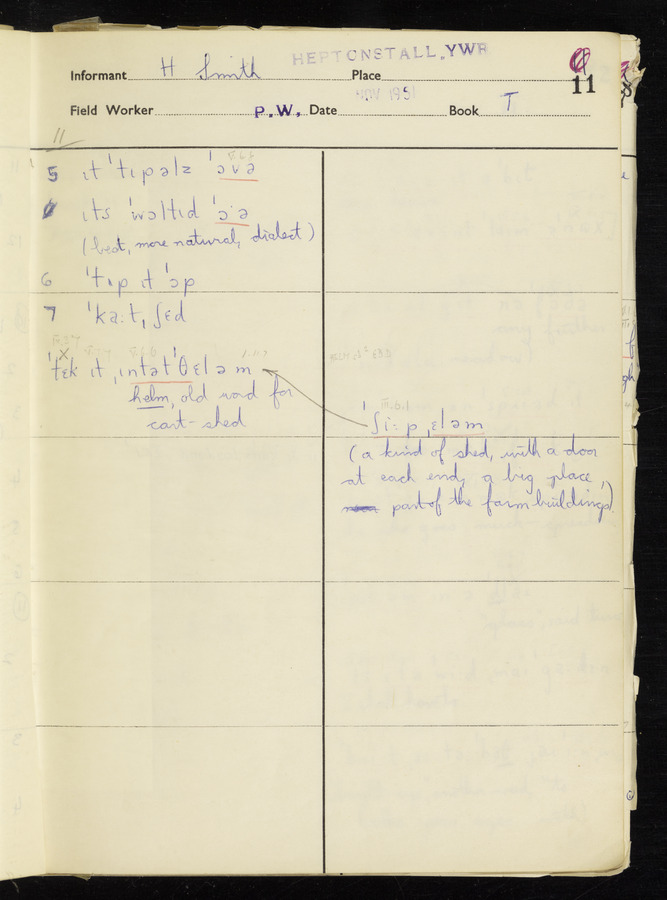 HEPTONSTALL, YWR
Informant H Smith Place
11
NOV 1951
Field Worker P.W. Date Book T
11
5 ɩt ˈtɩpəlz ˈɔvə
6 ɩts ˈwɔltɩd ˈɔːə
(best, more natural, dialect)
6 ˈtɩp ɩt ˈɔp
7 ˈkaːtˌʃɛd
X
ˈtɛk ɩt ˌɩntətˈθɛləm
helm, old word for
cart-shed
III.6.1
ˈʃiːpˌɛləm
(a kind of shed, with a door
at each end, a big place,
part of the farm buildings)